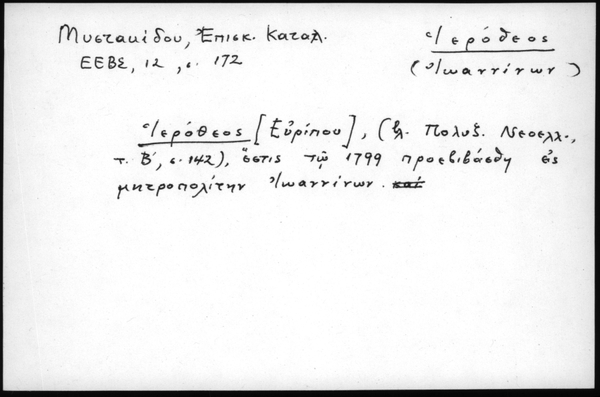 Μυστακίδου, Ἐπισκ. Καταλ.
ΕΕΒΣ, 12, σ. 172
Ἱερόθεος
(Ἰωαννίνων)
Ἱερόθεος [Εὐρίπου], (βλ. Πολυξ. Νεοελλ.,
τ. Β', σ. 142), ὅστις τῷ 1799 προεβιβάσθη ἐς
μητροπολίτην Ἰωαννίνων. καὶ